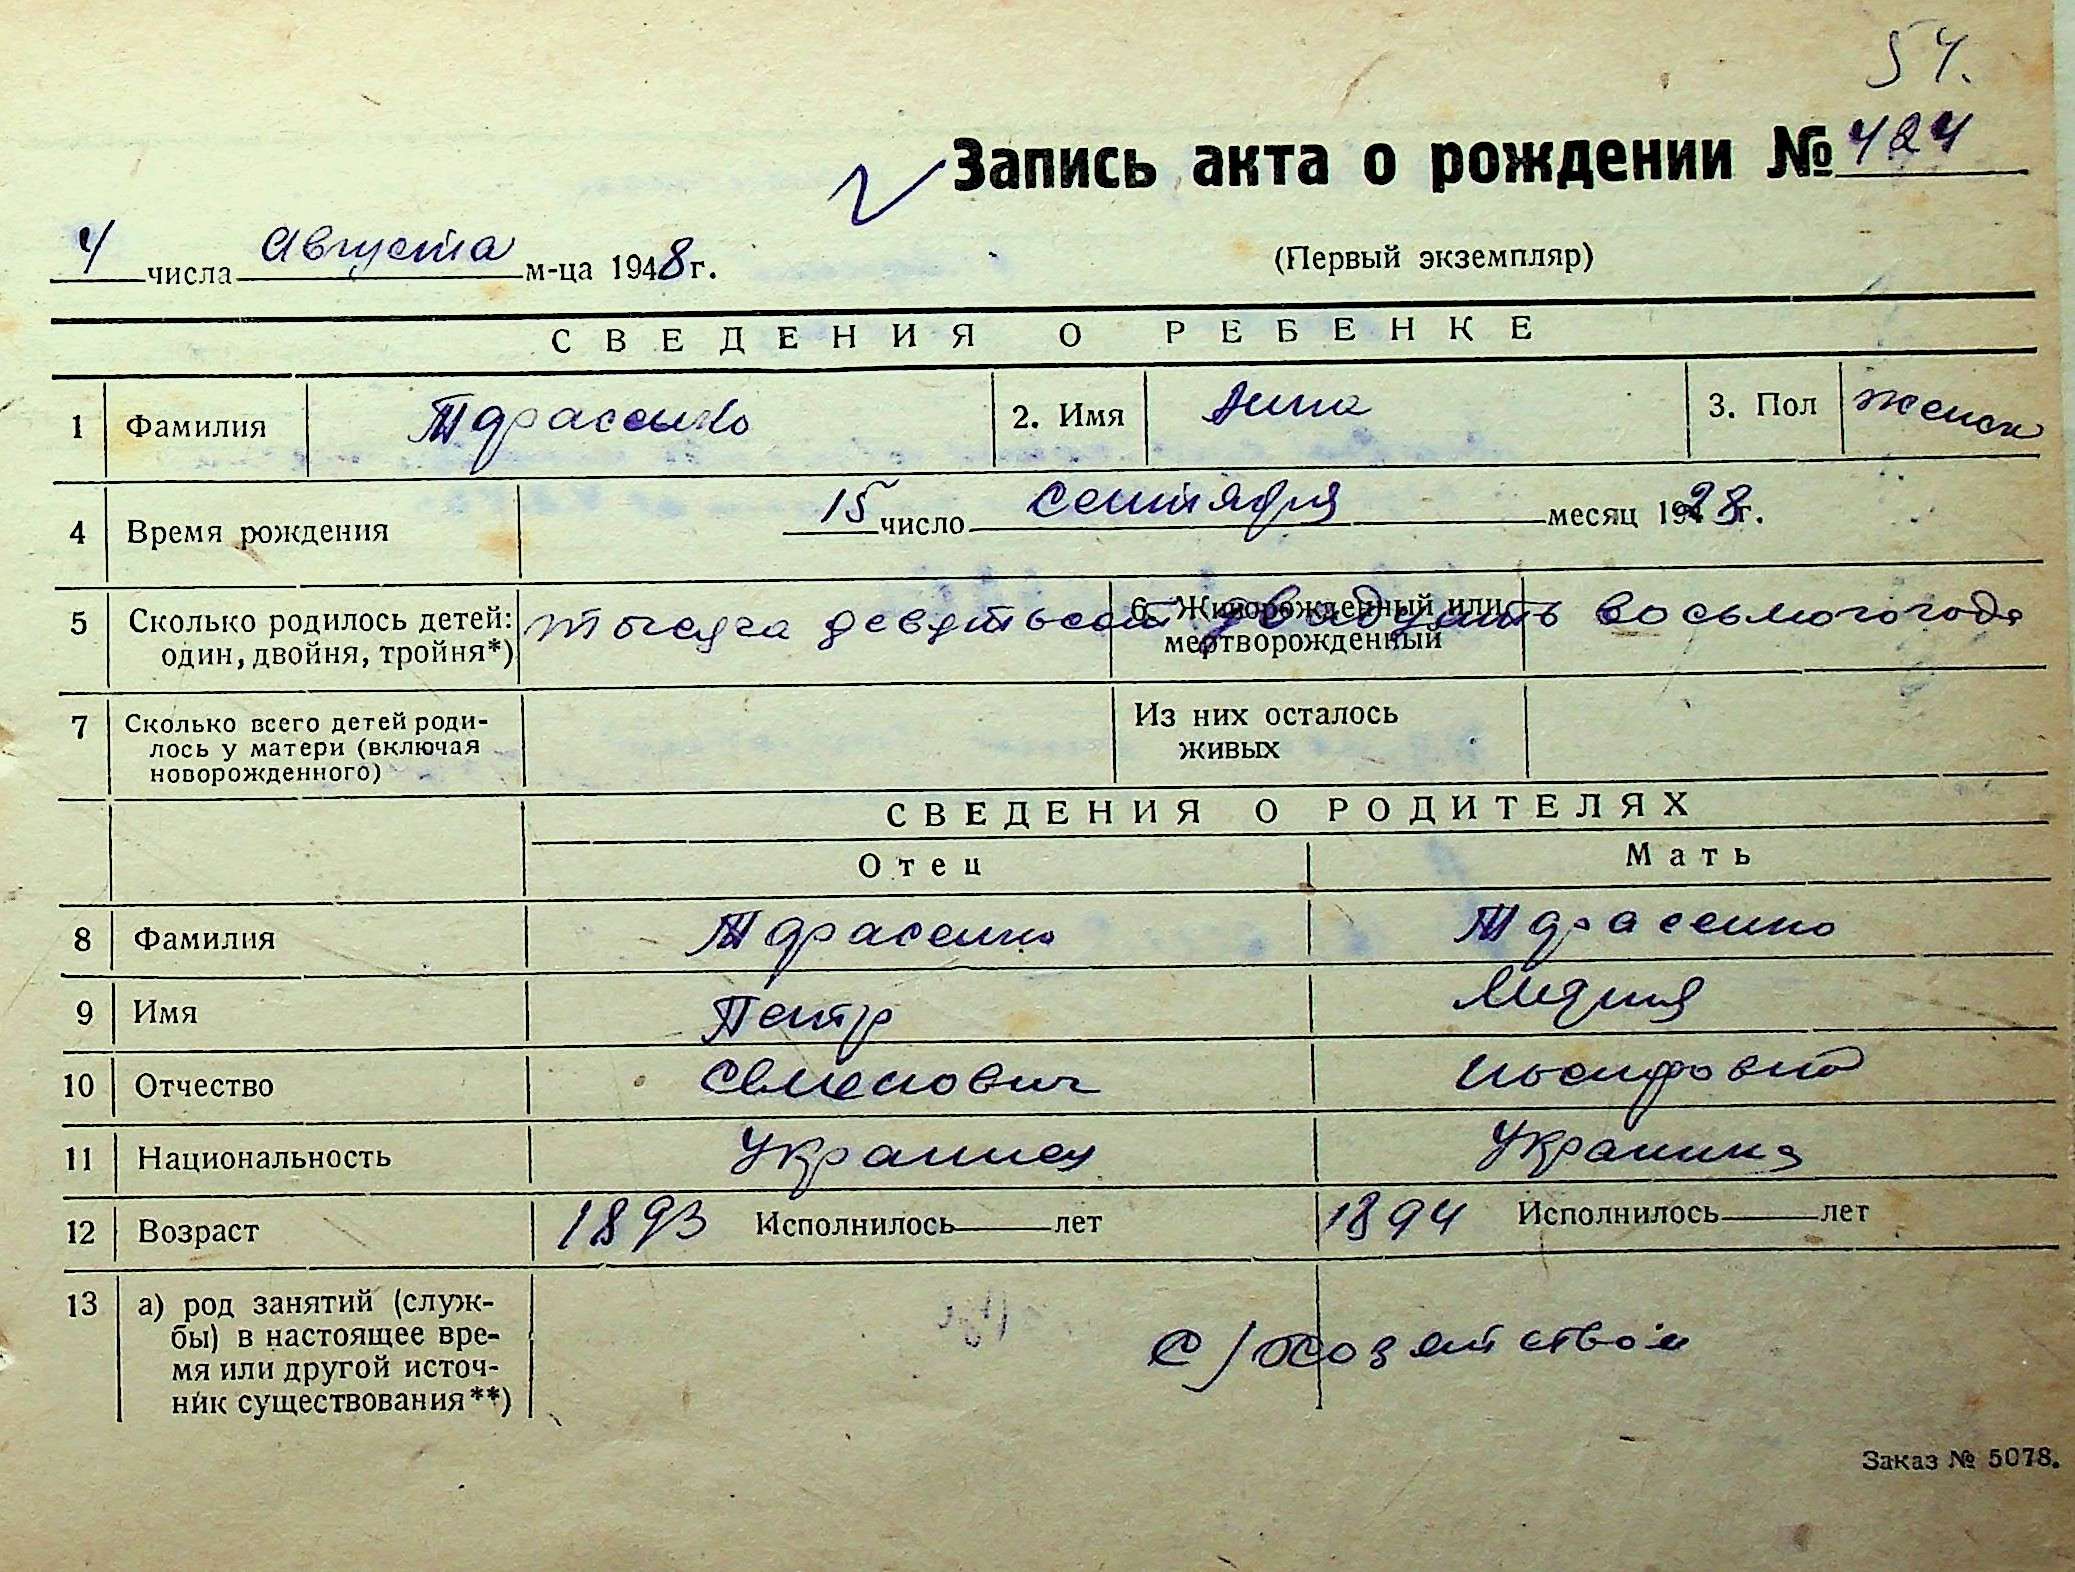 54.
Запись акта о рождении № 424
4 числа Августа м-ца 1948 г.
(Первый экземпляр)
СВЕДЕНИЯ О РЕБЕНКЕ
1 Фамилия Тарасенко 2. Имя Анна 3. Пол женск
4 Время рождения 15 число сентября месяц 1928 г.
5 Сколько родилось детей: один, двойня, тройня*) тысяча девятьсот двадцать восьмого года
6. Живорожденный или мертворожденный
7 Сколько всего детей родилось у матери (включая новорожденного)
Из них осталось живых
СВЕДЕНИЯ О РОДИТЕЛЯХ
Отец Мать
8 Фамилия Тарасенко Тарасенко
9 Имя Петр Лидия
10 Отчество Семенович Иосифовна
11 Национальность Украинец Украинка
12 Возраст 1893 Исполнилось лет 1894 Исполнилось лет
13 а) род занятий (служ-
бы) в настоящее вре-
мя или другой источ-
ник существования**)
Заказ № 5078.